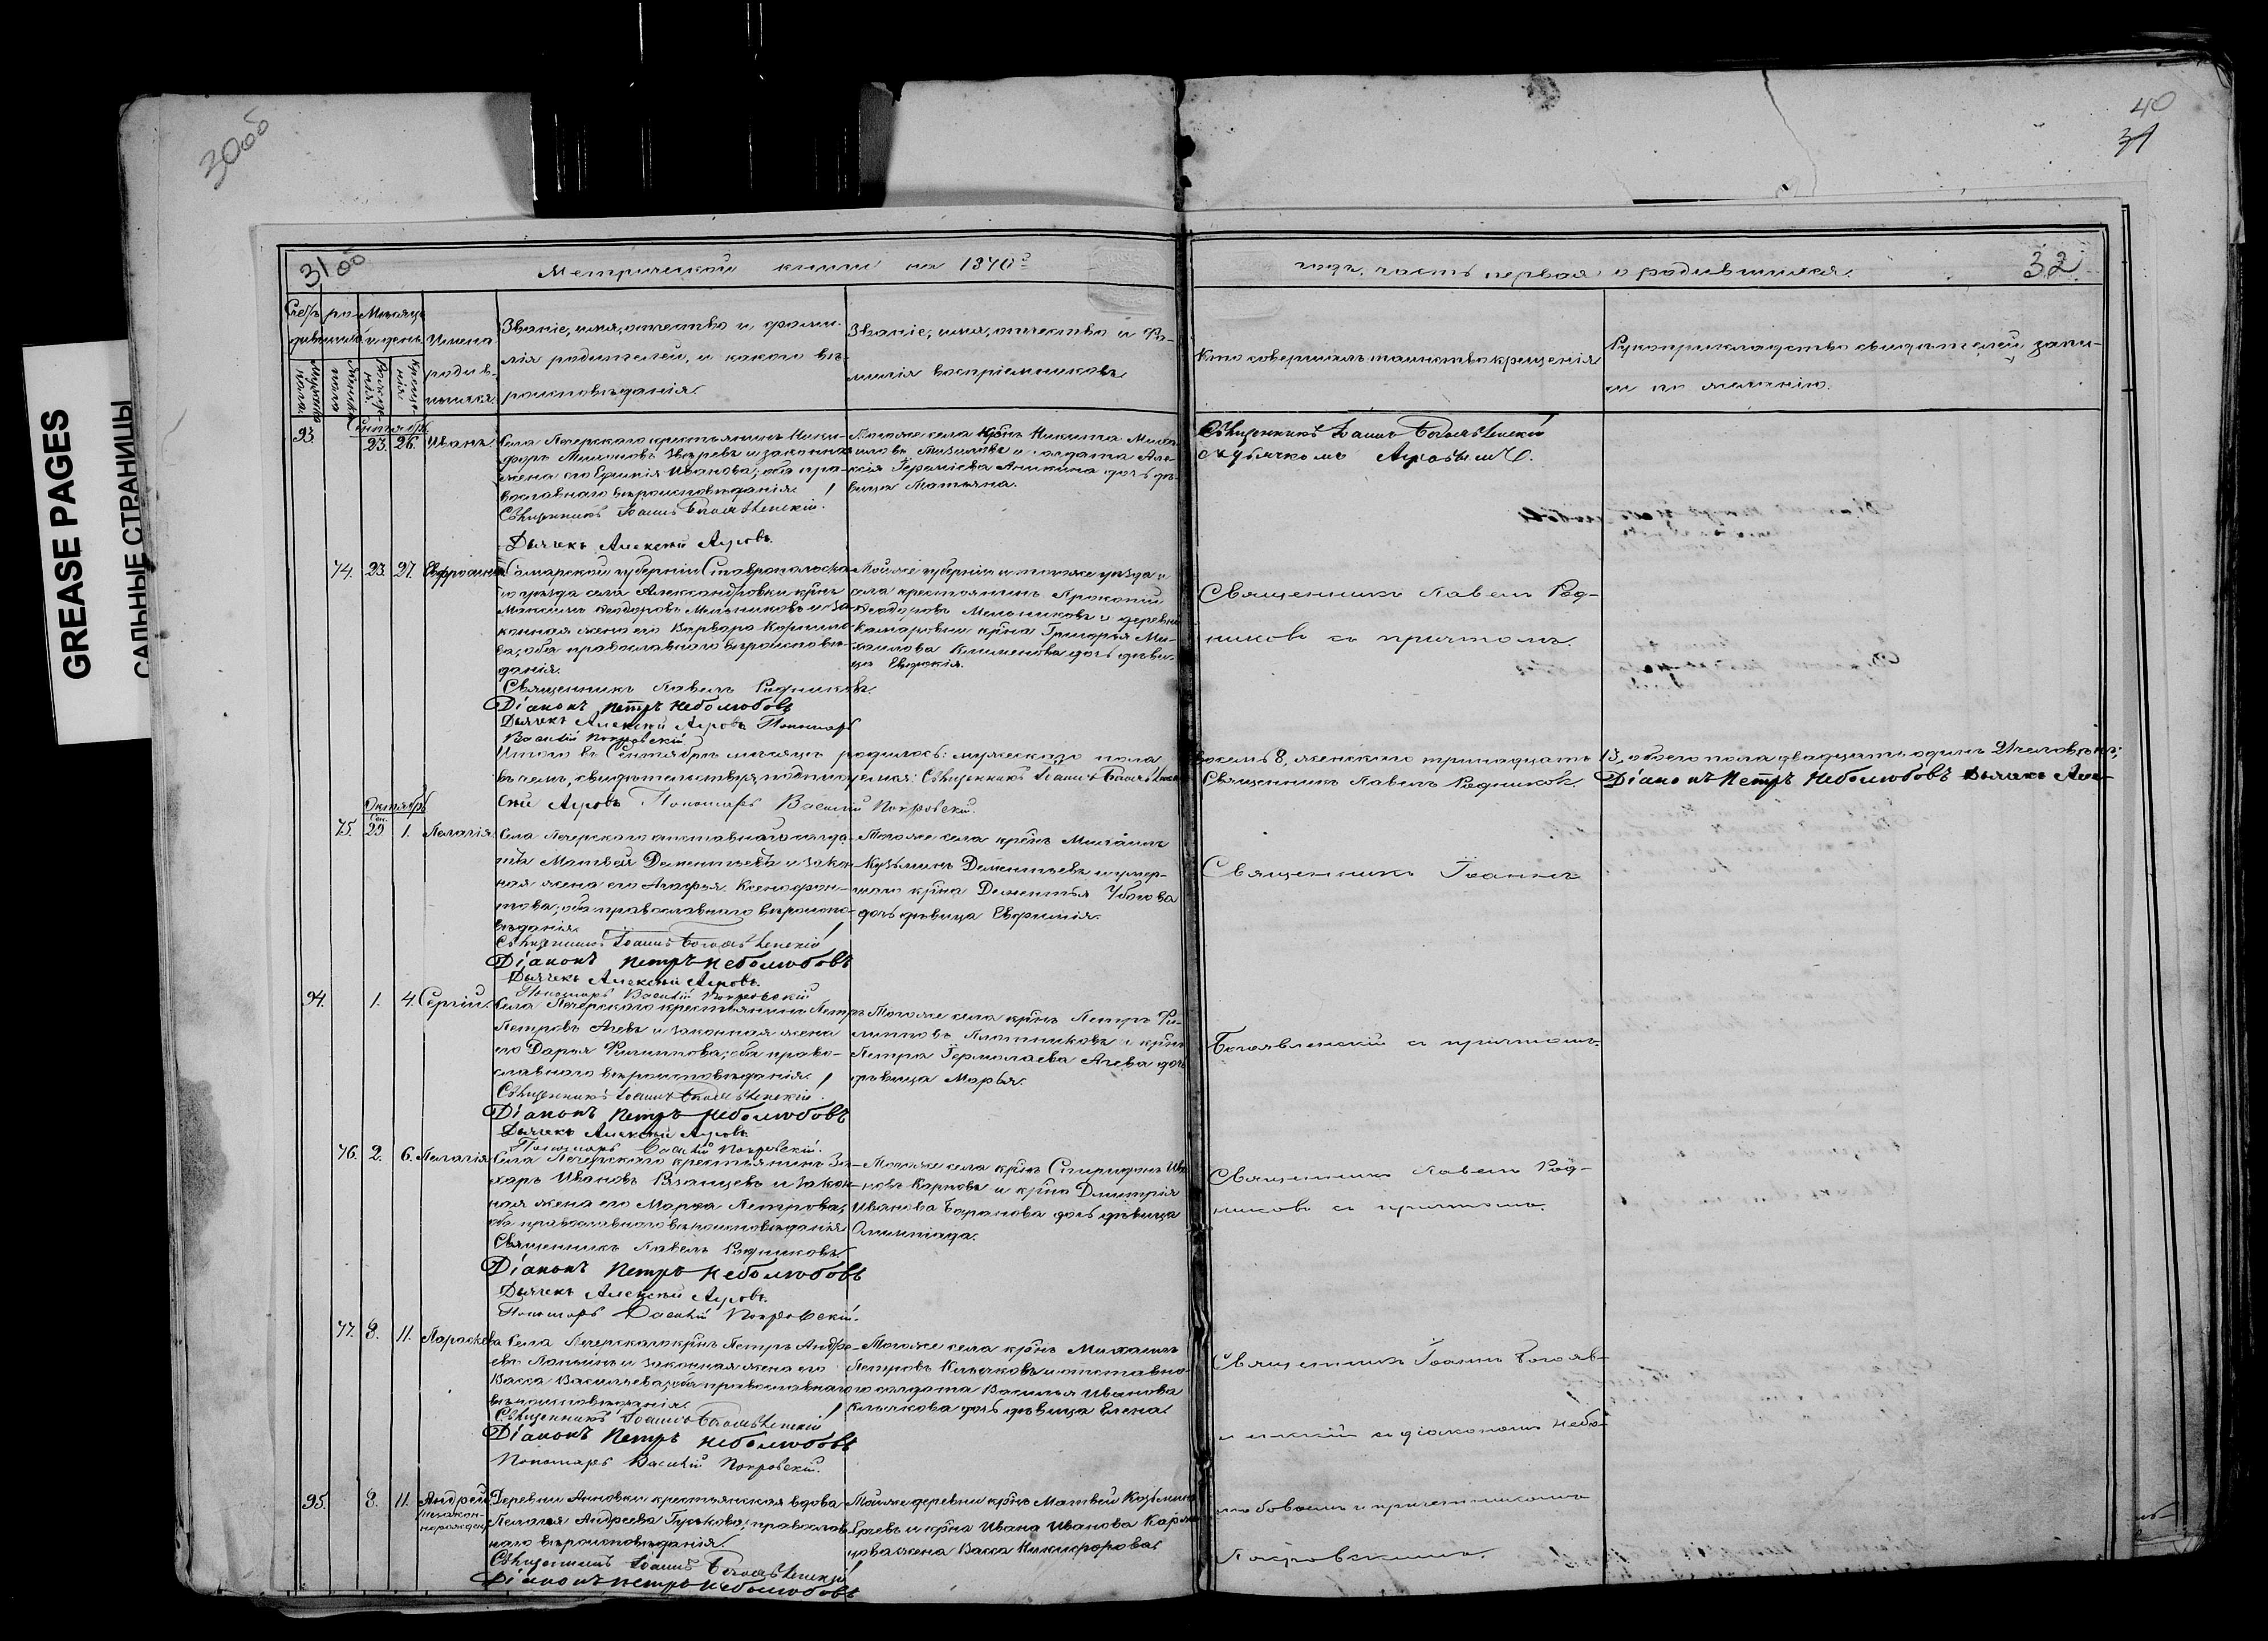 30об
40
31
GREASE PAGES
САЛЬНЫЕ СТРАНИЦЫ
31об
Метрической книги на 1870й
годъ, часть первая о родившихся.
32
Мѣсяцъ
и день.
Имена
родив-
шихся.
Званіе, имя, отчество и фами-
лія родителей, и какого вѣ-
роисповѣданія.
Званіе, имя, отчество и Фа-
милія воспріемниковъ
Кто совершалъ таинство крещенія
Рукоприкладство свидѣтелей запи-
си по желанію.
Сентябрь
93. 23. 26. Иванъ.
Села Печерскаго крестьянинъ Ники-
форъ Звѣревъ и законная
жена его Иванова; оба пра-
вославнаго вѣроисповѣданія.
Священникъ Іоаннъ Богоявленскій.
Дьячекъ Алексѣй Агровъ.
Тогоже села крнъ Никита
и солдата
Аникина дочь дѣ-
вица Татьяна.
Священникъ Іоаннъ Богоявленскій
съ дьячкомъ Агровымъ.
74. 23. 27. Евфросинія
Самарской губерніи Ставропольска-
го уѣзда села Александровки крнъ
Максимъ Ѳеодоровъ Мельниковъ и за-
конная жена его Варвара Корнило-
ва; оба православнаго вѣроисповѣ-
данія.
Священникъ Павелъ Родниковъ.
Діаконъ Петръ Неболюбовъ
Дьячекъ Алексѣй Агровъ Пономарь
Василій Покровскій
Тойже губерніи и тогоже уѣзда и
села крестьянинъ Прокопій
Ѳеодоровъ Мельниковъ и деревни
Комаровки крна Григорья Ми-
хайлова Клименова дочь дѣви-
ца Евдокія.
Священникъ Павелъ Род-
никовъ съ причтомъ.
Итого въ Сентябрѣ мѣсяцѣ родилось: мужескаго пола восемь 8, женскаго тринадцать 13, обоего пола двадцать одинъ 21 человѣкъ;
въ чемъ, свидѣтельствуя, подписуемся: Священникъ Іоаннъ Богоявленскій Священникъ Павелъ Родниковъ. Діаконъ Петръ Неболюбовъ Дьячекъ Але-
ксѣй Агровъ Пономарь Василій Покровскій.
Октябрь
Сен.
75. 29 1. Пелагія.
Села Печерскаго отставнаго солда-
та Матвей Дементьевъ и закон-
ная жена его Агафья Ксенофон-
това; оба православнаго вѣроиспо-
вѣданія.
Священникъ Іоаннъ Богоявленскій
Діаконъ Петръ Неболюбовъ
Дьячекъ Алексѣй Агровъ.
Пономарь Василій Покровскій
Тогоже села крнъ Михаилъ
Кузьминъ Дементьевъ и умер-
шаго крна Дементья Убогова
дочь дѣвица Евфимія.
Священникъ Іоаннъ
94. 1. 4. Сергій.
Села Печерскаго крестьянинъ Петръ
Петровъ Агевъ и законная жена
его Дарья Филиппова; оба право-
славнаго вѣроисповѣданія.
Священникъ Іоаннъ Богоявленскій.
Діаконъ Петръ Неболюбовъ
Дьячекъ Алексѣй Агровъ.
Пономарь Василій Покровскій.
Тогоже села крнъ Петръ Фи-
липповъ Плотниковъ и крна
Петра Ермолаева Агева дочь
дѣвица Марья.
Богоявленскій съ причтомъ.
76. 2. 6. Пелагія
Села Печерскаго крестьянинъ За-
харъ Ивановъ Рязанцевъ и закон-
ная жена его Марѳа Петрова;
оба православнаго вѣроисповѣданія
Священникъ Павелъ Родниковъ.
Діаконъ Петръ Неболюбовъ
Дьячекъ Алексѣй Агровъ.
Пономарь Василій Покровскій.
Тогоже села крнъ Спиридонъ Ива-
новъ Карповъ и крна Дмитрія
Иванова Баранова дочь дѣвица
Олимпіада.
Священникъ Павелъ Род-
никовъ съ причтомъ.
77. 8. 11. Параскева
Села Печерскаго крнъ Петръ Андре-
евъ Паньинъ и законная жена его
Васса Васильева; оба православнаго
вѣроисповѣданія.
Священникъ Іоаннъ Богоявленскій
Діаконъ Петръ Неболюбовъ
Пономарь Василій Покровскій.
Тогоже села крнъ Михаилъ
Петровъ Клычковъ и отставно-
го солдата Василья Иванова
Клычкова дочь дѣвица Елена.
Священникъ Іоаннъ Богояв-
ленскій съ діакономъ Небо-
95. 8. 11. Андрей
незакон-
норожден.
Деревни Анновки крестьянская вдова
Пелагея Андреева Гуськова; православ-
наго вѣроисповѣданія.
Священникъ Іоаннъ Богоявленскій
Діаконъ Петръ Неболюбовъ
Тойже деревни крнъ Матвей Козьминъ
и крна Ивана Иванова
жена Васса Никифорова.
любовымъ и причетникомъ
Покровскимъ.